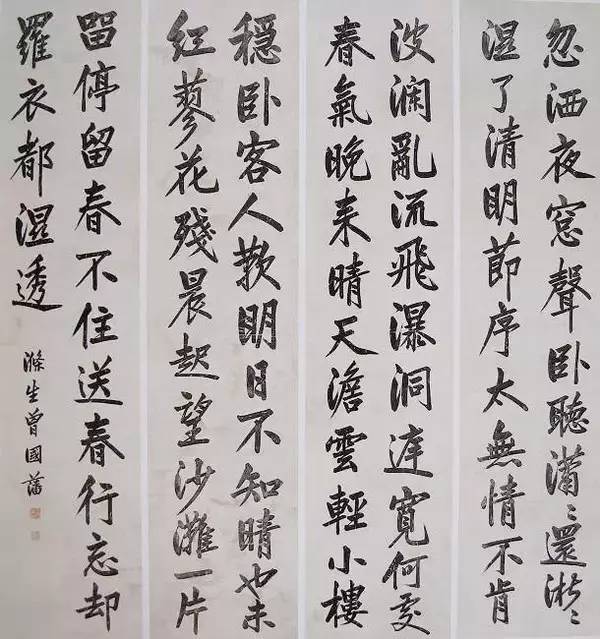 忽洒夜窓聲卧聽潇〻還淅〻
湿了清明節序太無情不肯
波澜亂流飛瀑洞達寬何處
春氣晚来晴天澹雲輕小樓
穩卧客人歎明日不知晴也未
紅蓼花殘晨起望沙灘一片
畱停留春不住送春行忘却
羅衣都湿透
滌生曾國藩